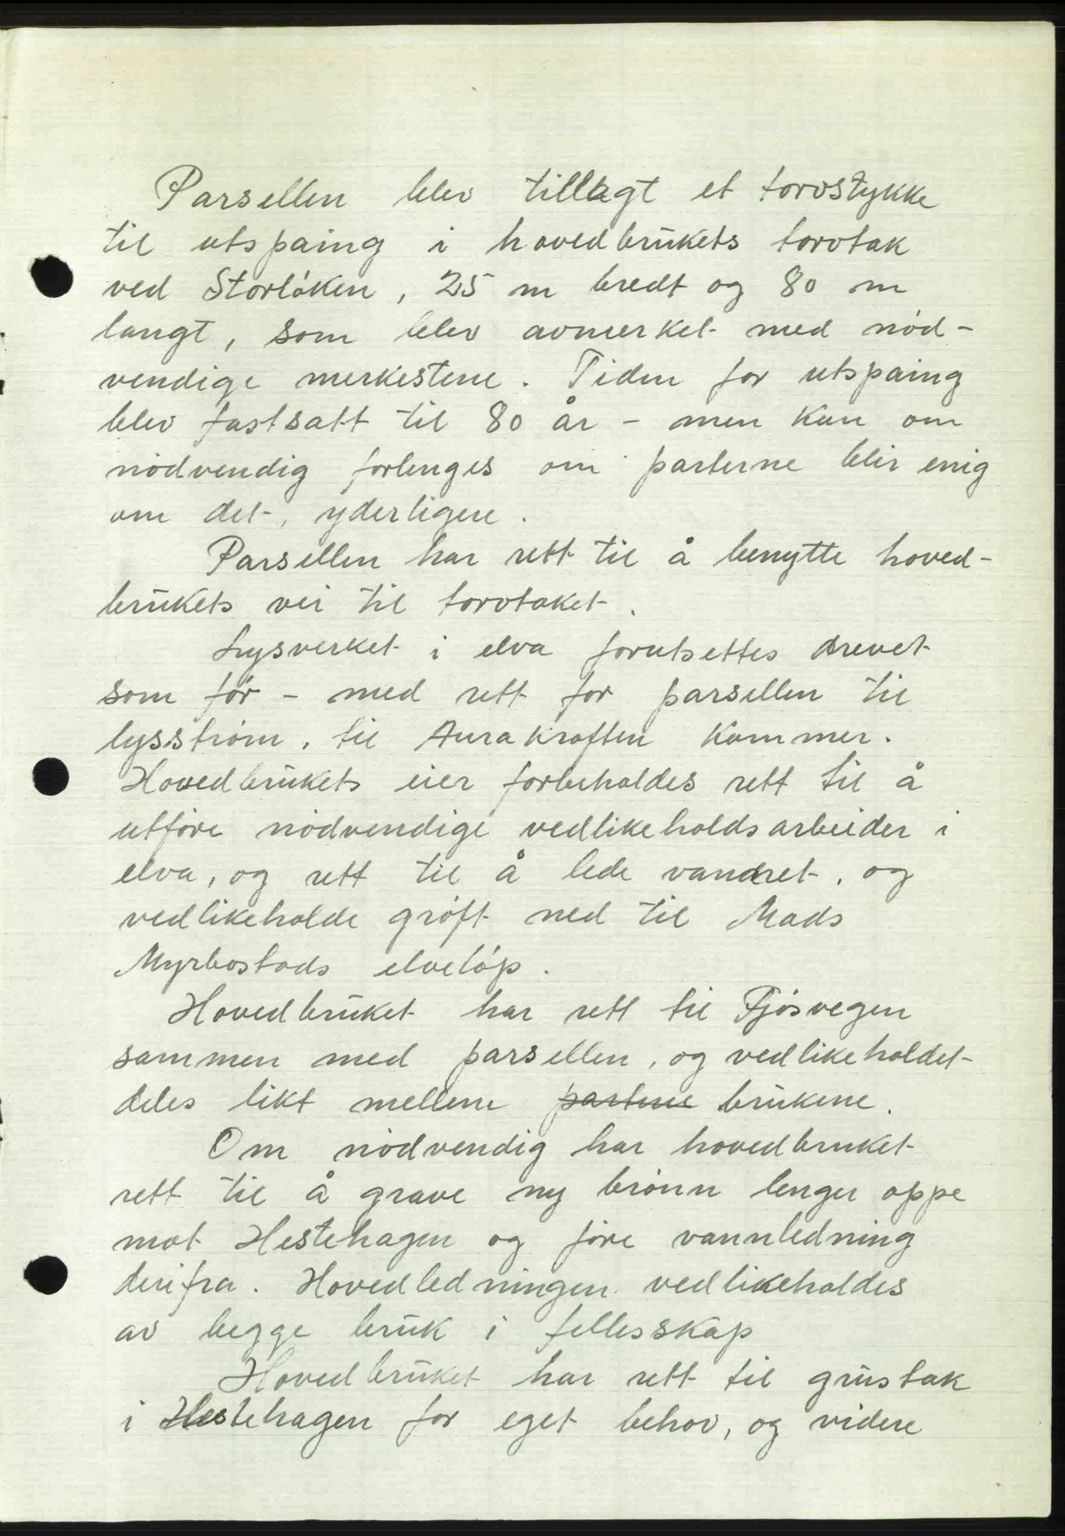 Parsellen blev tillagt et torvstykke
til utspaing i hovedbrukets torvtak
ved Storløken, 25 m bredt og 80 m
langt, som blev avmerket med nød-
vendige merkestene. Tiden for utspaing
blev fastsatt til 80 år - men kan om
nødvendig forlenges om parterne blir enig
om det, yderligere.
Parsellen har rett til å benytte hoved-
brukets vei til torvtaket.
Lysverket i elva forutsettes drevet
som før - med rett for parsellen til
lysstrøm, til Aurakraften kommer.
Hovedbrukets eier forbeholdes rett til å
utføre nødvendige vedlikeholdsarbeider i
elva, og rett til å lede vandret, og
vedlikeholde grøft ned til Mads
Myrbostads elveløp.
Hovedbruket har rett til Fjøsvegen
sammen med parsellen, og vedlikeholdet
deles likt mellem partene brukene.
Om nødvendig har hovedbruket
rett til å grave ny brønn lenger oppe
mot Hestehagen og føre vannledning
derifra. Hovedledningen vedlikeholdes
av begge bruk i fellesskap
Hovedbruket har rett til grustak
i Hestehagen for eget behov, og videre